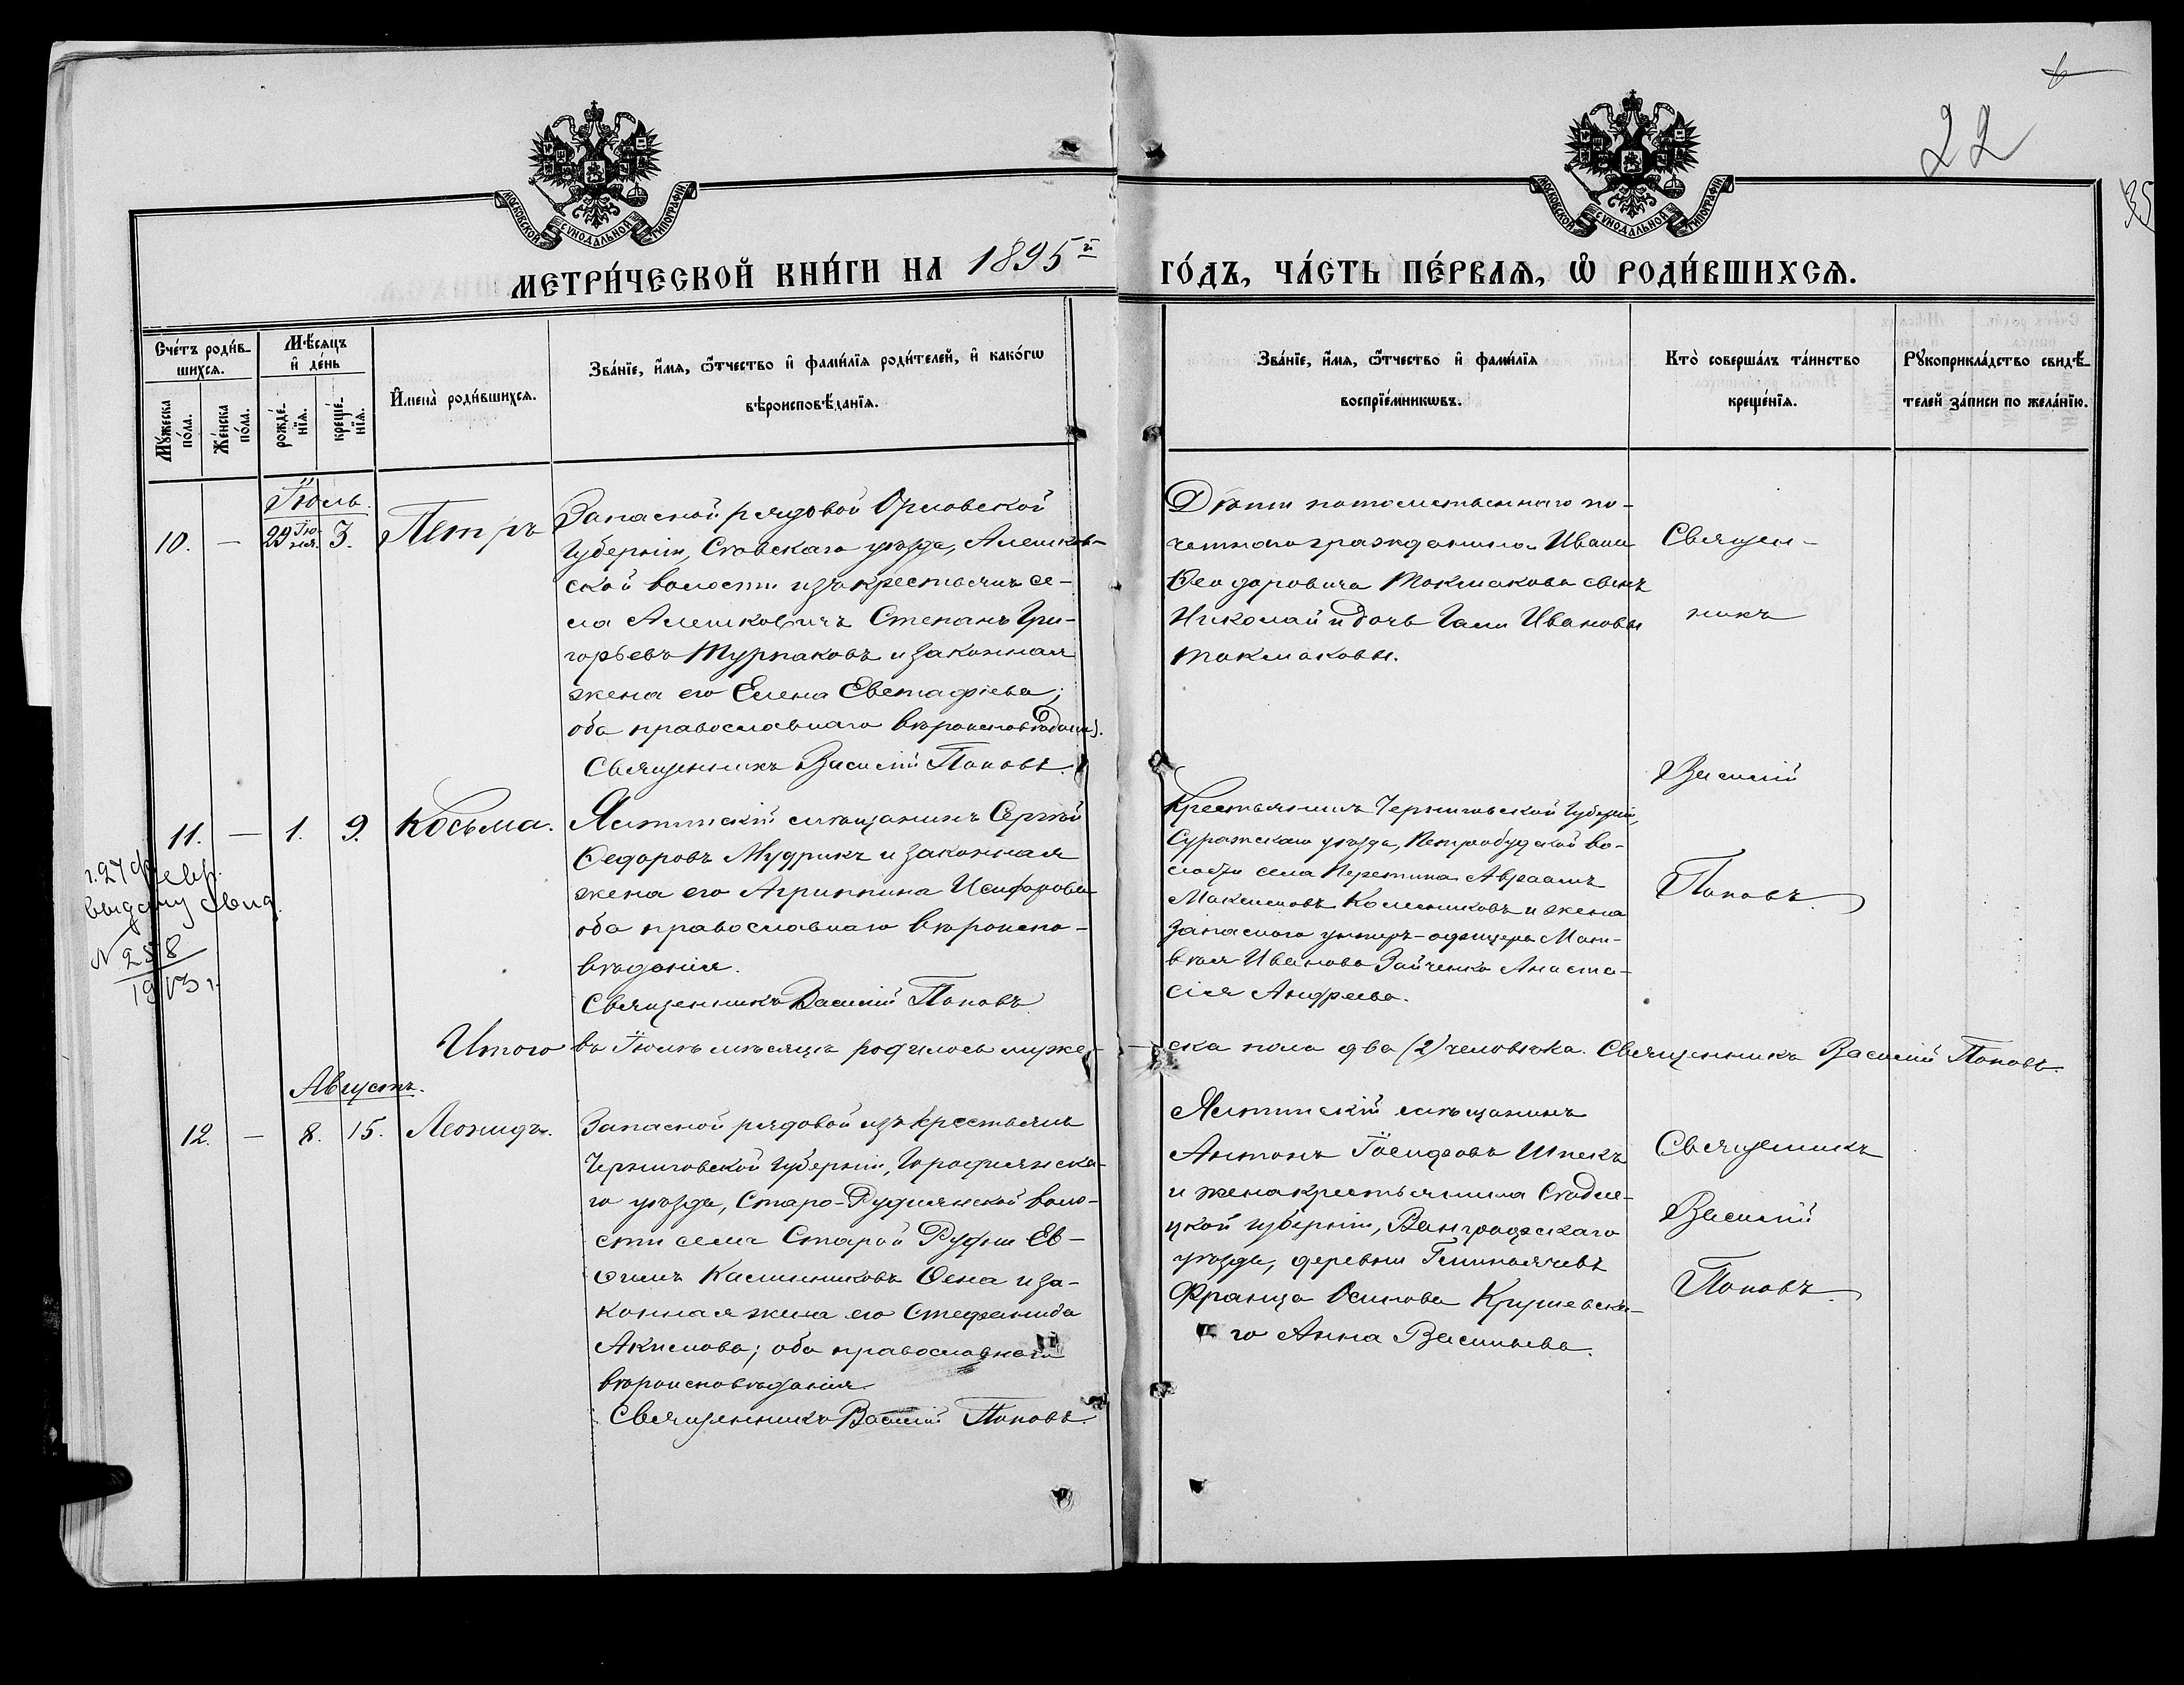 22
35
МОСКОВСКОЙ СѴНОДАЛЬНОЙ ТИПОГРАФІИ
МОСКОВСКОЙ СѴНОДАЛЬНОЙ ТИПОГРАФІИ
МЕТРИ́ЧЕСКОЙ КНИ́ГИ НА 1895й ГО́ДЪ, ЧА́СТЬ ПЕ́РВАЯ, Ѡ РОДИ́ВШИХСЯ.
Сче́тъ роди́в-
шихся.
Мꙋ́жеска
по́ла.
Же́нска
по́ла.
Мѣ́сяцъ
и де́нь
рожде́-
нїя.
креще́-
нїя.
И҆мена̀ роди́вшихся.
Зва́нїе, и҆́мя, ѻ҆́тчество и҆ фами́лїя роди́телей, и҆ како́гѡ
вѣроисповѣ́данїя.
Зва́нїе, и҆́мя, ѻ҆́тчество и҆ фами́лїя
воспрїе́мникѡвъ.
Кто̀ соверша́лъ та́инство
креще́нїя.
Рꙋкоприкла́дство свидѣ́-
телей за́писи по жела́нїю.
Іюль.
10. — 29 Іюня. 3. Петръ
Запасной рядовой Орловской
Губерніи, Сѣвскаго уѣзда, Алешков-
ской волости изъ крестьянъ се-
ла Алешковичъ Степанъ Гри-
горьевъ Турпаковъ и законная
жена его Елена Евстафіева;
оба православнаго вѣроисповѣданія.
Священникъ Василій Поповъ.
Дѣти потомственнаго по-
четнаго гражданина Ивана
Ѳеодоровича Токмакова сынъ
Николай и дочь Ивановы
Токмаковы.
Священ-
никъ
Василій
Поповъ
11. — 1. 9. Косьма.
Ялтинскій мѣщанинъ Сергѣй
Ѳедоровъ Мудрикъ и законная
жена его Агриппина
оба православнаго вѣроиспо-
вѣданія.
Священникъ Василій Поповъ
Крестьянинъ Черниговской Губерніи,
Суражскаго уѣзда, Петробудской во-
лости села Авраамъ
Максимовъ и жена
запаснаго унтеръ-офицера Мат-
вѣя Иванова Зайченко Анаста-
сія Андреева.
27 февр.
выдану свид.
№ 258
1913 г.
Итого въ Іюлѣ мѣсяцѣ родилось муже-
ска пола два (2) человѣка. Священникъ Василій Поповъ.
Августъ.
12. — 8. 15. Леонидъ.
Запасной рядовой изъ крестьянъ
Черниговской Губерніи, Городнянска-
го уѣзда, Старо-Руднянской воло-
сти села Старой Рудни Ев-
Калинниковъ и за-
конная жена его Стефанида
Акимова; оба православнаго
вѣроисповѣданія.
Священникъ Василій Поповъ.
Ялтинскій мѣщанинъ
Антонъ Іосифовъ
и жена крестьянина Сѣдле-
цкой губерніи, Венгровскаго
уѣзда, деревни
Франца Осипова Крушевска-
го Анна Васильева.
Священникъ
Василій
Поповъ